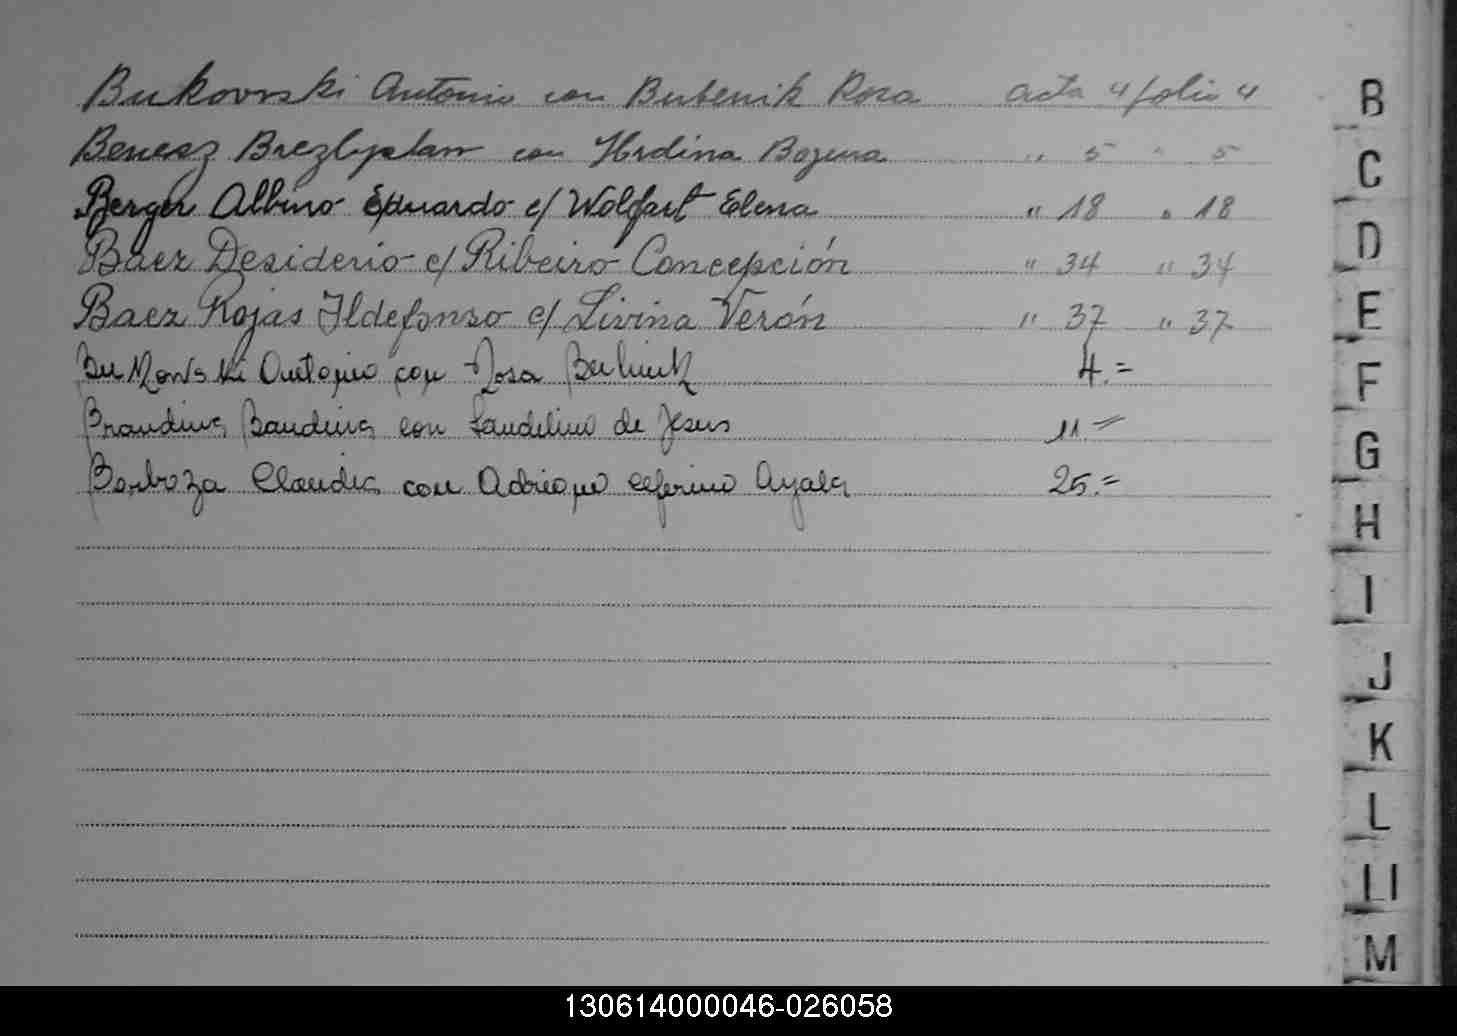 Bukovski Antonio con Bubenik Rosa acta 4 folio 4
Benesz Brezlyslam con Hrdina Bozena " 5 " 5
Berger Albino Eduardo c/ Wolfart Elena " 18 " 18
Baez Desiderio c/ Ribeiro Concepción " 34 " 34
Baez Rojas Ildefonso c/ Livina Verón " 37 " 37
Antonio con Rosa 4.=
Bandina con Laudelino de Jesus 11.=
Barboza Claudia con Adriano Ceferino Ayala 25.=
B
C
D
E
F
G
H
I
J
K
L
Ll
M
130614000046-026058